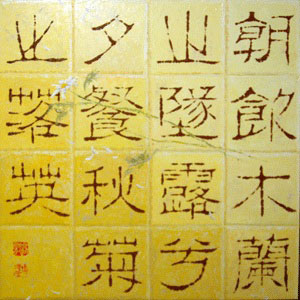 朝飲木蘭
之墜露兮
夕餐秋菊
之落英